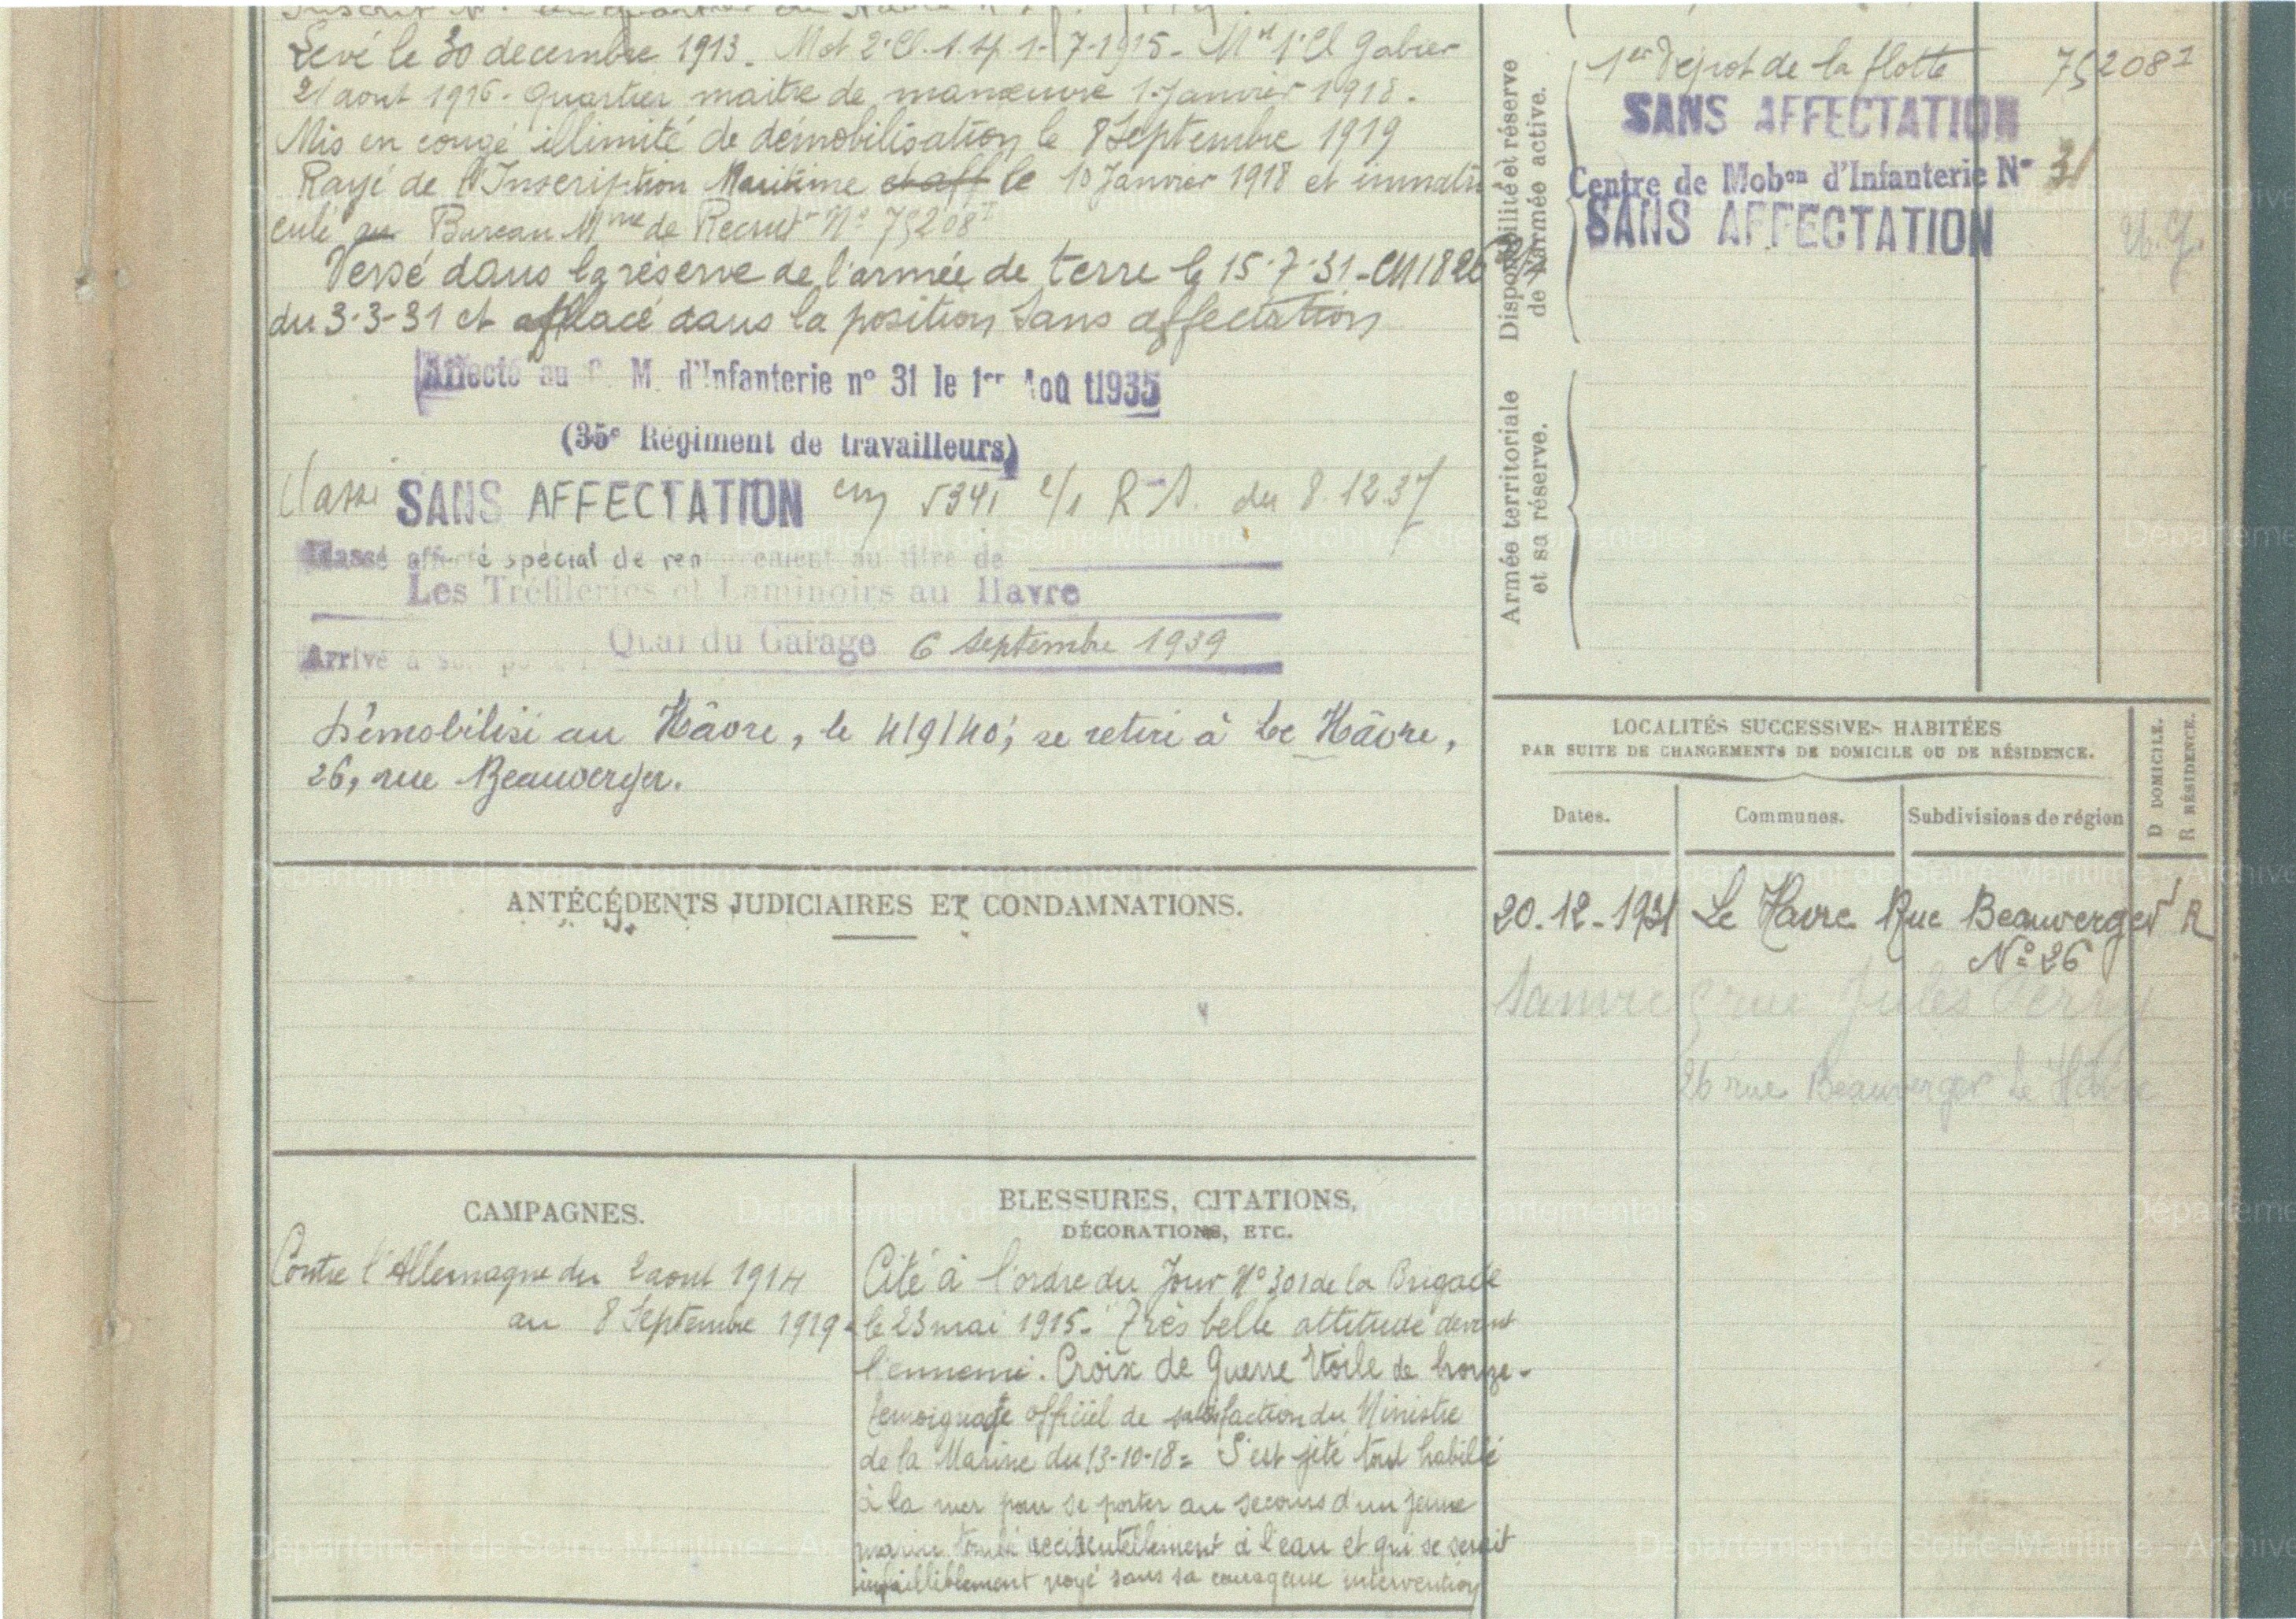 Levé le 30 decembre 1913. Mot 2e Cl. 1. sp. 1-7-1915 - Mot 1e Cl Gabier
21 aout 1916. Quartier maitre de manœuvre 1 Janvier 1918.
Mis en congé illimité de démobilisation le 8 Septembre 1919
Rayé de l'Inscription Maritime et aff le 10 Janvier 1918 et immatri
culé au Bureau Mme de Recrut N° 75208 I
Versé dans la réserve de l'armée de terre le 15-7-31 - CM 1826
du 3-3-31 et placé dans la position Sans affectation
Affecté au C. M. d'Infanterie n° 31 le 1er Aoû t1935
(35e Régiment de travailleurs)
Classé SANS AFFECTATION CM 5341 2/1 R.A. du 8.12.37
Classé affecté spécial de renforcement au titre de
Les Tréfileries et Laminoirs au Havre
Arrivé à son
Quai du Garage 6 septembre 1939
Démobilisé au Hâvre, le 4/9/40; se retire à Le Hâvre,
26, rue Beauverger.
ANTÉCÉDENTS JUDICIAIRES ET CONDAMNATIONS.
CAMPAGNES.
Contre l'Allemagne du 2 aout 1914
au 8 Septembre 1919.
BLESSURES, CITATIONS,
DÉCORATIONS, ETC.
Cité à l'ordre du Jour N° 301 de la Brigade
le 23 mai 1915. Très belle attitude devant
l'ennemi. Croix de Guerre Etoile de bronze -
temoignage officiel de satisfaction du Ministre
de la Marine du 13-10-18 = S'est jeté tout habillé
à la mer pour se porter au secours d'un jeune
marin tombé accidentellement à l'eau et qui se serait
infailliblement noyé sans sa courageuse intervention
Disponibilité et réserve
de l'armée active.
1er Dépot de la flotte 75208 I
SANS AFFECTATION
Centre de Mobon d'Infanterie N° 31
SANS AFFECTATION
Armée territoriale
et sa réserve.
LOCALITÉS SUCCESSIVES HABITÉES
PAR SUITE DE CHANGEMENTS DE DOMICILE OU DE RÉSIDENCE.
D DOMICILE.
R RÉSIDENCE.
Dates. Communes. Subdivisions de région
20.12.1931 Le Havre Rue Beauverger R
N° 26
Sanvic rue Jules Ferry
26 rue Beauverger Le Hâvre
Département de Seine-Maritime - Archives départementales